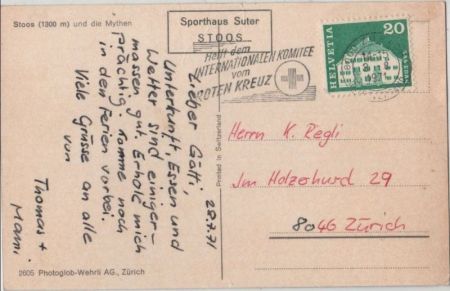 Stoos (1300 m) und die Mythen
Sporthaus Suter
STOOS
Helft dem
INTERNATIONALEN KOMITEE
vom
ROTEN KREUZ
HELVETIA
20
28.7.71
Lieber Götti,
Unterkunft, Essen und
Wetter sind einiger-
massen gut. Erhole mich
prächtig. Komme noch
in den Ferien vorbei.
Viele Grüsse an alle
von
Thomas +
Mami
Printed in Switzerland
Herrn K. Regli
Im Holzerhurd 29
8046 Zürich
2605 Photoglob-Wehrli AG., Zürich